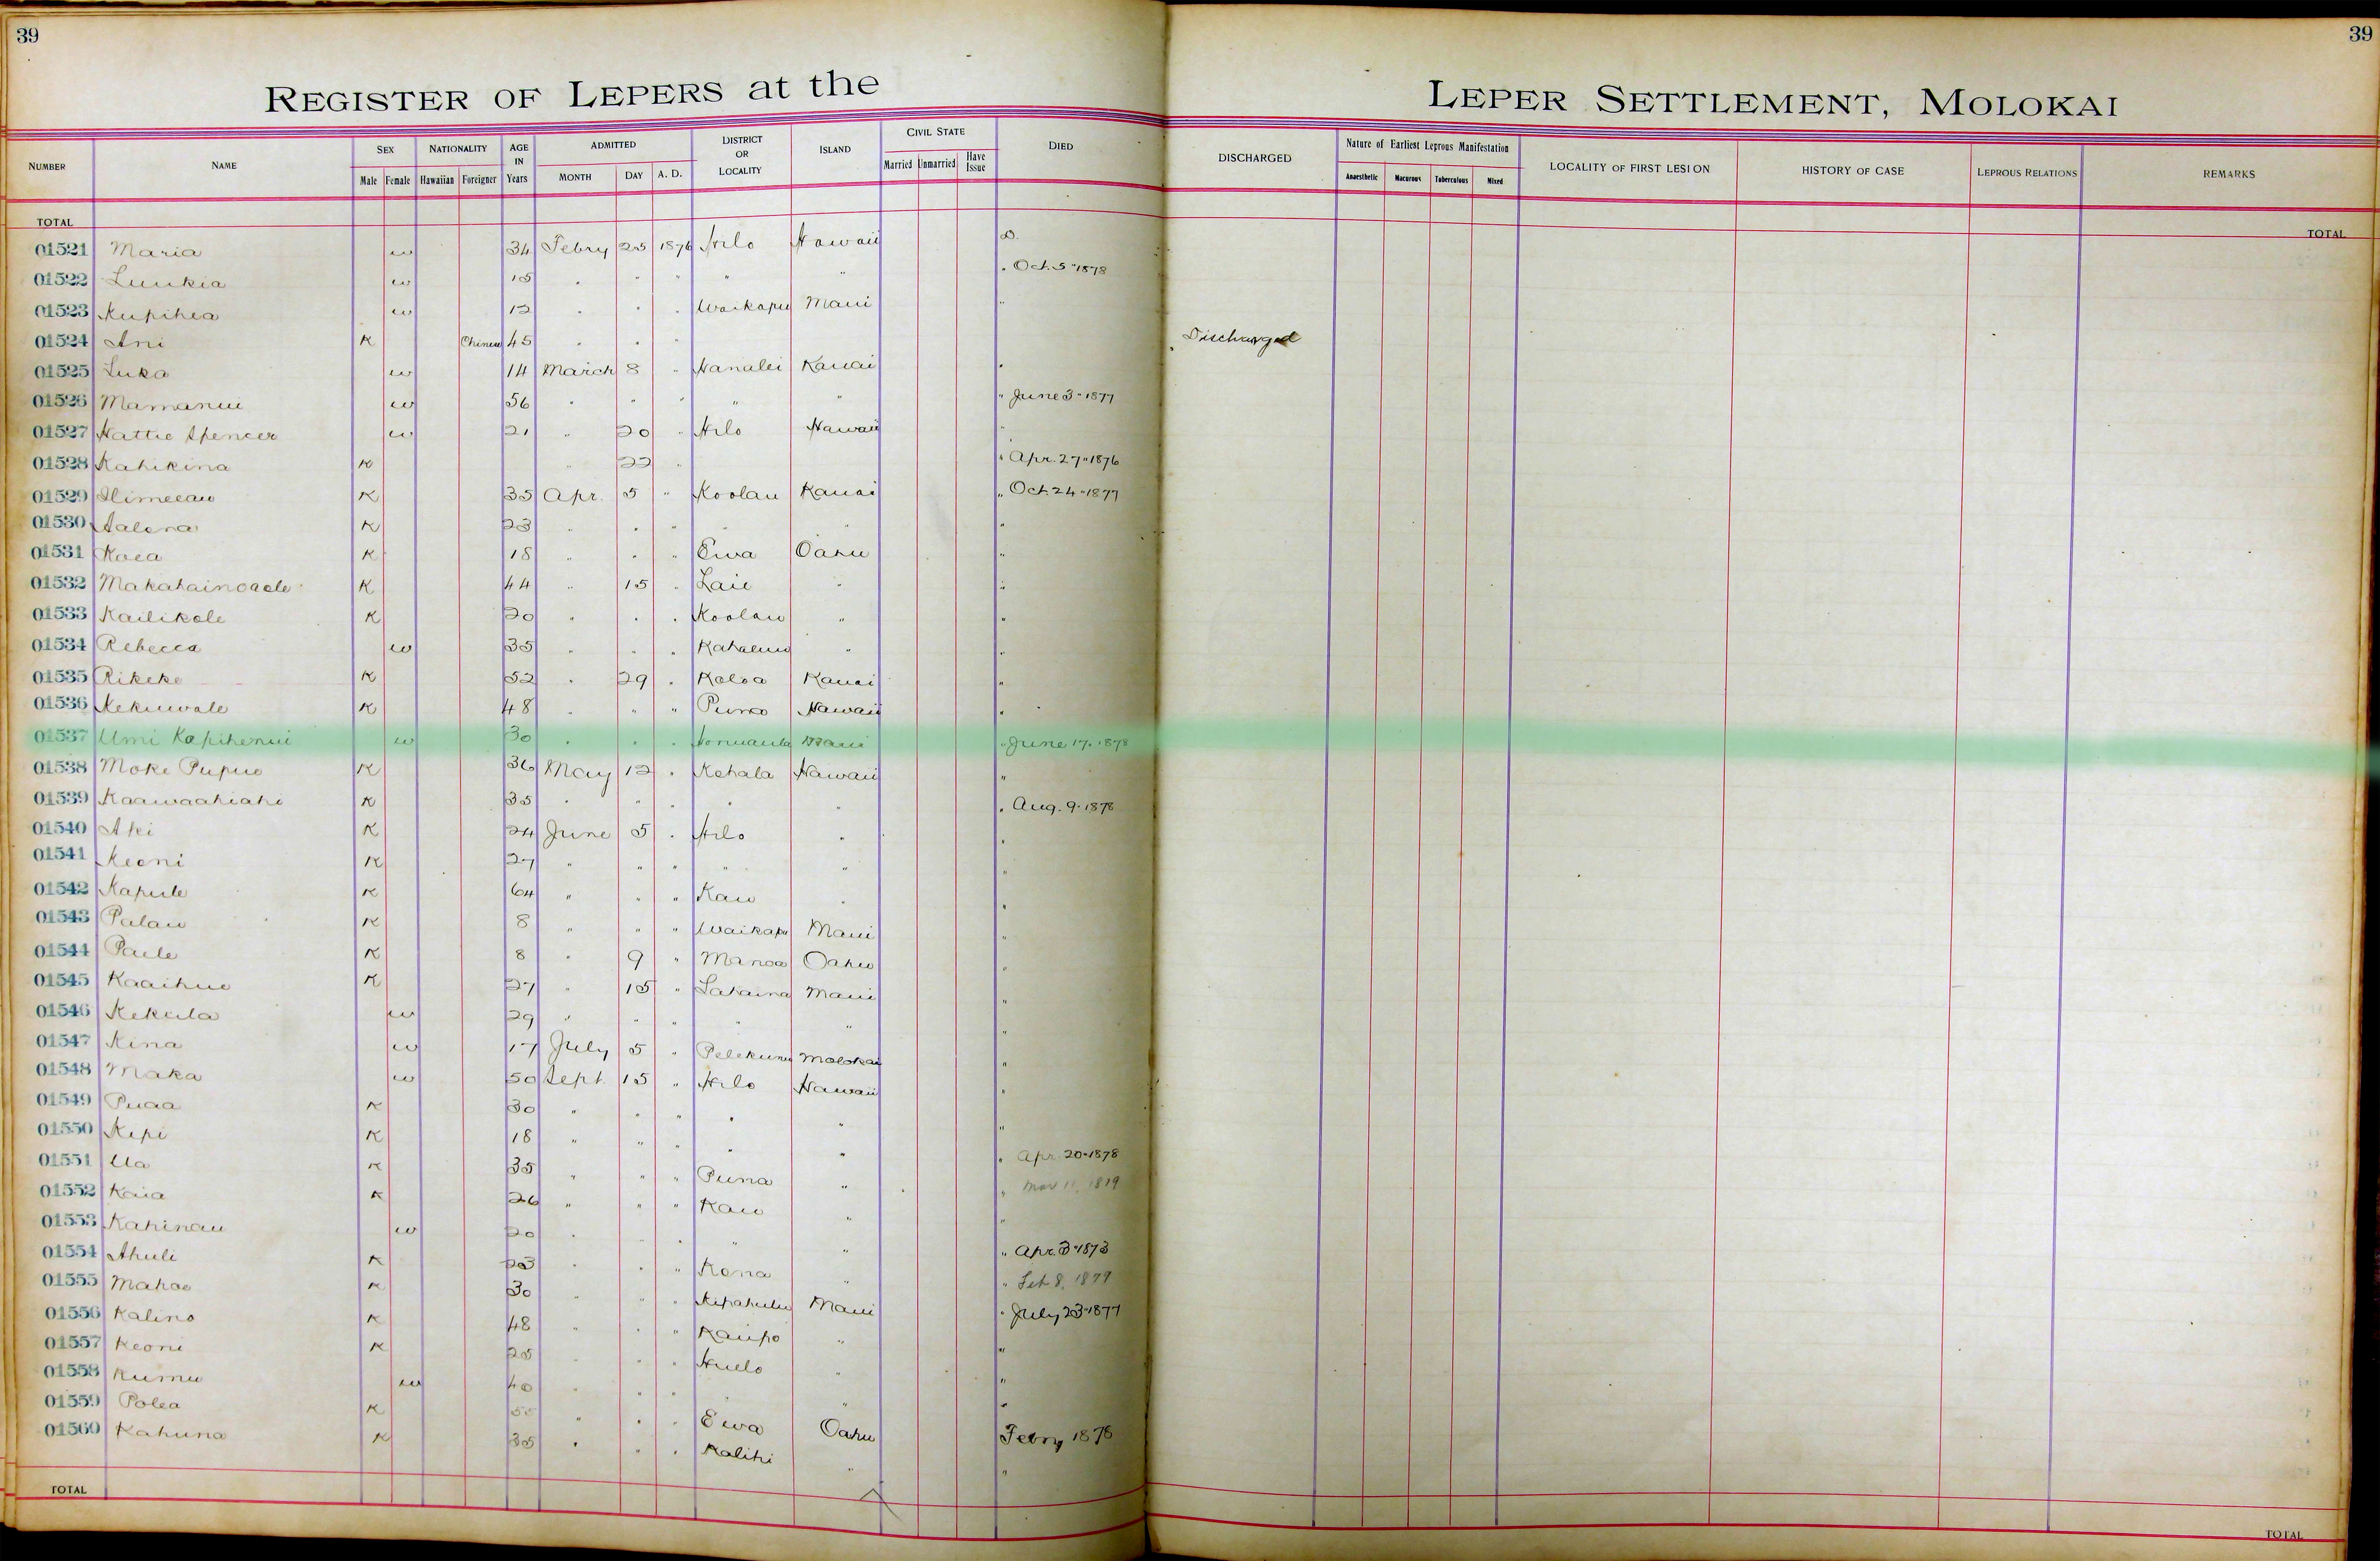 39
39
REGISTER OF LEPERS at the LEPER SETTLEMENT, MOLOKAI
NUMBER NAME SEX Male Female NATIONALITY Hawaiian Foreigner AGE IN Years ADMITTED MONTH DAY A. D. DISTRICT OR LOCALITY ISLAND CIVIL STATE Married Unmarried Have Issue DIED DISCHARGED Nature of Earliest Leprous Manifestation Anaesthetic Macurous Tuberculous Mixed LOCALITY OF FIRST LESION HISTORY OF CASE LEPROUS RELATIONS REMARKS
TOTAL TOTAL
01521 Maria w 34 Febry 25 1876 Hilo Hawaii D.
01522 w 15 " " " " " " Oct. 5 "1878
01523 Kupihea w 12 " " " Waikapu Maui "
01524 Ani K Chinese 45 " " " Discharged
01525 Luka w 14 March 8 " Hanalei Kauai "
01526 Mamanui w 56 " " " " " " June 3 - 1877
01527 Hattie Spencer w 21 " 20 " Hilo Hawaii "
01528 Kahikina K " 22 " " Apr. 27 " 1876
01529 K 35 Apr. 5 " Koolau Kauai " Oct. 24 - 1877
01530 Aalona K 23 " " " " " "
01531 Koea K 18 " " " Ewa Oahu "
01532 K 44 " 15 " Laie " "
01533 Kailikole K 20 " " " Koolau " "
01534 Rebecca w 35 " " " Kahaluu " "
01535 Rikeke K 52 " 29 " Koloa Kauai "
01536 Kekuwale K 48 " " " Puna Hawaii "
01537 Umi Kapihenui w 30 " " " Honuaula Maui " June 17. 1878
01538 Moke Pupuo K 36 May 12 " Kohala Hawaii "
01539 Kaawaahiahi K 35 " " " " " " Aug. 9. 1878
01540 K 24 June 5 " Hilo " "
01541 Keoni K 27 " " " " " "
01542 Kapule K 64 " " " Kau " "
01543 Palau K 8 " " " Waikapu Maui "
01544 Paele K 8 " 9 " Manoa Oahu "
01545 Kaaihue K 27 " 15 " Lahaina Maui "
01546 Kekula w 29 " " " " " "
01547 Kina w 17 July 5 " Pelekunu Molokai "
01548 Maka w 50 Sept. 15 " Hilo Hawaii "
01549 Puaa K 30 " " " " " "
01550 Kepi K 18 " " " " "
01551 Ua K 35 " " " Puna " " Apr. 20 - 1878
01552 Kaia K 26 " " " Kau " " Mar 11,
01553 Kahinau w 20 " " " " " "
01554 Ahuli K 23 " " " Kona " " Apr. 3 "1873
01555 Mahoe K 30 " " " Kipahulu Maui " Feb 8, 1879
01556 Kalino K 48 " " " Kaupo " " July 23 - 1877
01557 Keoni K 25 " " " Huelo " "
01558 Kumu w 40 " " " "
01559 Polea K 55 " " " Ewa Oahu "
01560 Kahuna K 35 " " " Kalihi " Febry 1878
TOTAL TOTAL